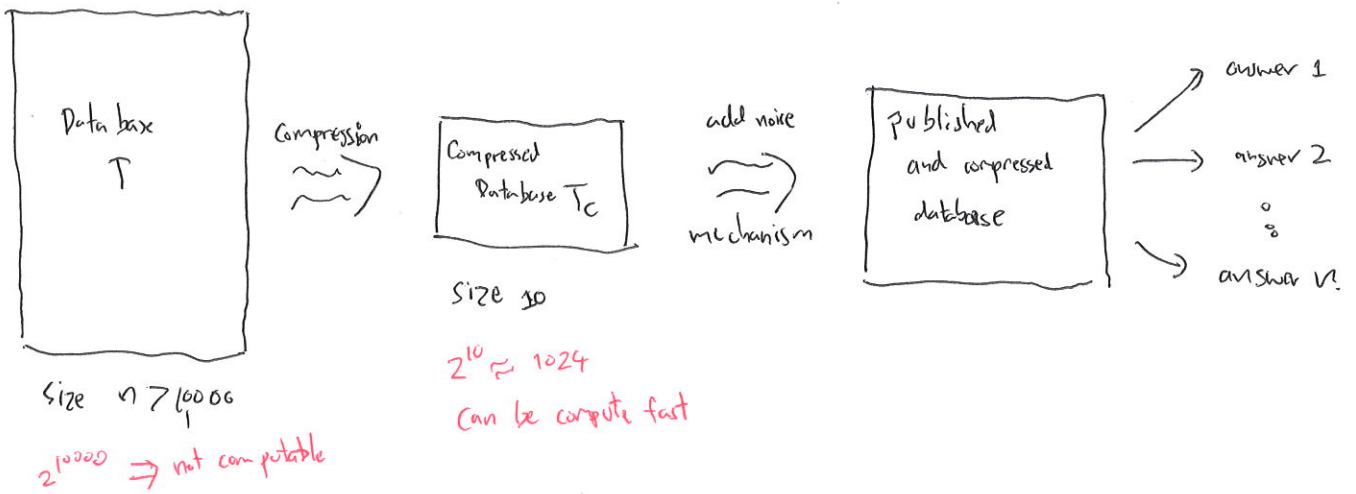 Database
T
Size n > 10,000
2^10000 ⇒ not computable
Compression
Compressed
Database T_C
Size 10
2^10 ≈ 1024
Can be compute fast
add noise
mechanism
published
and compressed
database
answer 1
answer 2
answer n